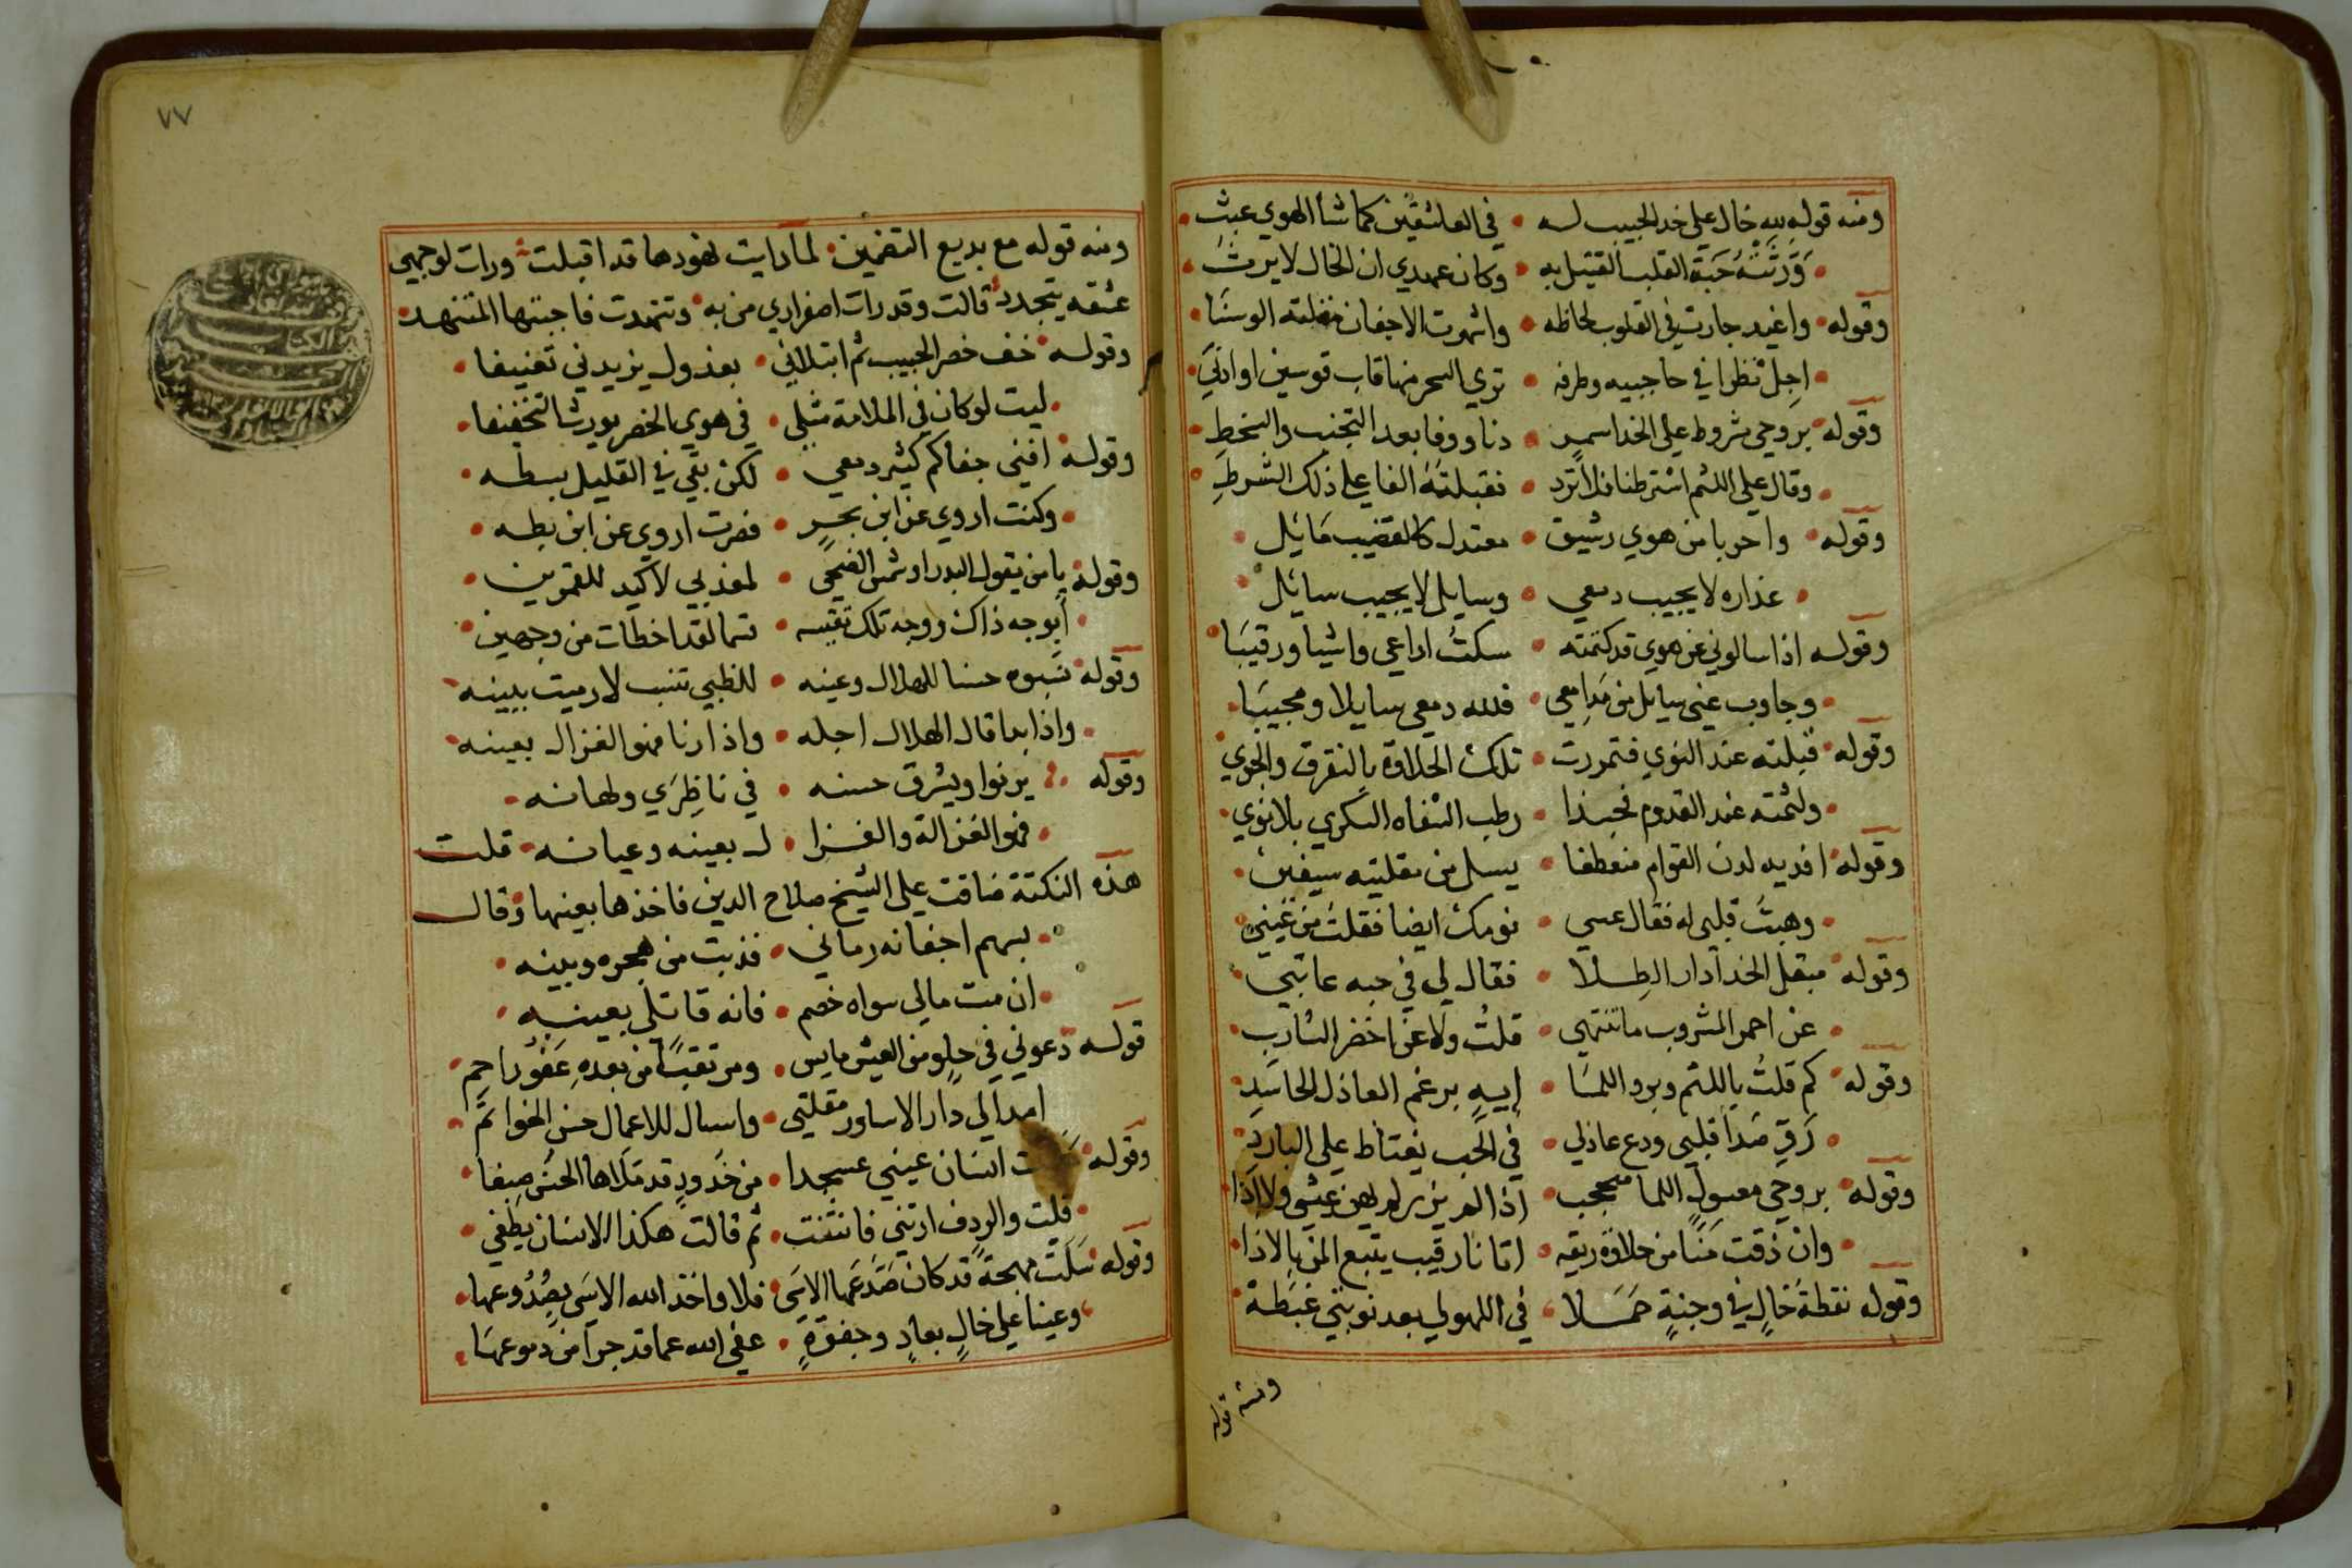 ومنه قوله لله خال على خد الحبيب له • في العاشقين كما شأ الهوي عبث •
• وَرَّثَتْهُ حَبَة القلب القتيل به • وكان عهدي ان الخال لا يرث •
وقوله • واغيد جارت في القلوب لحاظه • واشهرت الاجفان مقلته الوسنَا •
• اجل نظرا في حاجبيه وطرفه • تري السحر منها قاب قوسين او ادني •
وقوله • بروحي مشروط علي الخد اسمر • دنا ووفا بعد التجنب والسخط •
• وقال علي اللثم اشترطنا فلا تزد • فقبلته الفا علي ذلك الشرط •
وقوله • واحربا من هوي رشيق • معتدل كالقضيب مَايل •
• عذاره لا يجيب دمعي • وسايل لا يجيب سايل •
وقوله اذا سالوني عن هوي قد كتمته • سكتُ اراعي واشيا ورقيبَا •
• وجاوب عني سايل من مَدامعي • فلله دمعي سايلا ومجيبَا •
وقوله • قبلته عند النوي فتمررت • تلك الحلاوة بالتفرق والجوي •
• ولثمته عند القدوم فحبذا • رطب الشفاه السكري بلا نوي •
وقوله • افديه لدن القوام منعطفا • يسل من مقلتيه سيفين •
• وهبتُ قلبي له فقال عسي • نومك ايضا فقلت من عيني •
وقوله • مبقل الخد ادار الطلا • فقال لي في حبه عاتبي •
• عن احمر المشروب ما تنتهي • قلتُ ولا عن اخضر الشارب •
وقوله • كم قلتُ باللثم وبرد اللمَا • إيهٍ برغم العاذل الحاسَدِ •
• رَقِ صَدا قلبي ودع عاذلي • في الحب يغتاظ علي البارد •
وقوله • بروحي معسول اللما محجب • اذا لم يزر لم يهن عيشي ولا اذا •
• وان ذقت مَنًا من حلاوة ريقه • اتانا رقيب يتبع المن بالاذا •
وقوله نقطة خالٍ في وجنةٍ حمَلا • في اللهو لي بعد توبتي غبَطة •
ومنه قوله
٧٧
ومنه قوله مع بديع التضمين • لما رايت نهودها قد اقبلت • ورات لوجهي
عشقه يتجدد • قالت وقد رات اصفراري من به • وتنهدت فاجبتها المتنهد •
وقوله • خف خصر الحبيب ثم ابتلاني • بعذول يزيدني تعنيفا •
• ليت لو كان في الملامة مثلي • في هوي الخصر يورث التخفيفا •
وقوله • افني جفاكم كثير دمعي • لكن بقي في القليل بسطه •
• وكنت اروي عن ابن بحرٍ • فصرت اروي عن ابن بطه •
وقوله • يا من يقول البدر او شمس الضحي • لمعذبي لا كيد للقمرين •
• أبوجه ذاك ووجه تلك تقيسه • قسما لقد اخطات من وجهين •
وقوله • نسبوه حسنا للهلال وعينه • للظبي تنسب لا رميت ببينه •
• واذا بدا قال الهلال اجله • واذا رنا فهو الغزال بعينه •
وقوله • يرنوا ويشرق حسنه • في ناظرَي ولهانه •
• فهو الغزالة والغزا • ل بعينه وعيانه • قلت
هذه النكتة ضاقت علي الشيخ صلاح الدين فاخذها بعينها وقال
• بسهم اجفانه رماني • فذبت من هجره وبينه •
• ان مت مالي سواه خصم • فانه قاتلي بعينه •
قوله دعوني في حلو من العيش مايس • ومرتقبًا من بعدهِ عَفوُ راحمِ •
امد الي دار الاساور مقلتي • واسال للاعمال حسن الخواتم •
وقوله • انسان عيني عسجدا • من خدودٍ قد ملاها الحسن صبغا •
• قلت والردف ارتني فانثنت • ثم قالت هكذا الانسان يطغي •
وقوله سَلَت مهجةً قد كان صَدَعَها الاسَي • فلا واخذ الله الاسَي بصُدُوعها •
• وعينا علي خالٍ بعادٍ وجفوةٍ • عفي الله عما قد جرا من دموعهَا •